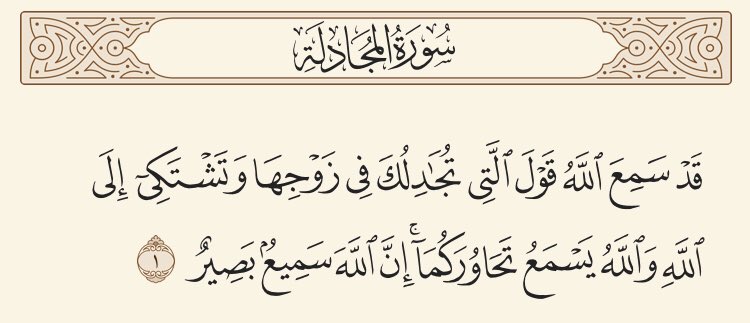 سُورَةُ المُجَادلَةِ
قَدۡ سَمِعَ ٱللَّهُ قَوۡلَ ٱلَّتِي تُجَٰدِلُكَ فِي زَوۡجِهَا وَتَشۡتَكِيٓ إِلَى
ٱللَّهِ وَٱللَّهُ يَسۡمَعُ تَحَاوُرَكُمَآۚ إِنَّ ٱللَّهَ سَمِيعُۢ بَصِيرٌ ١